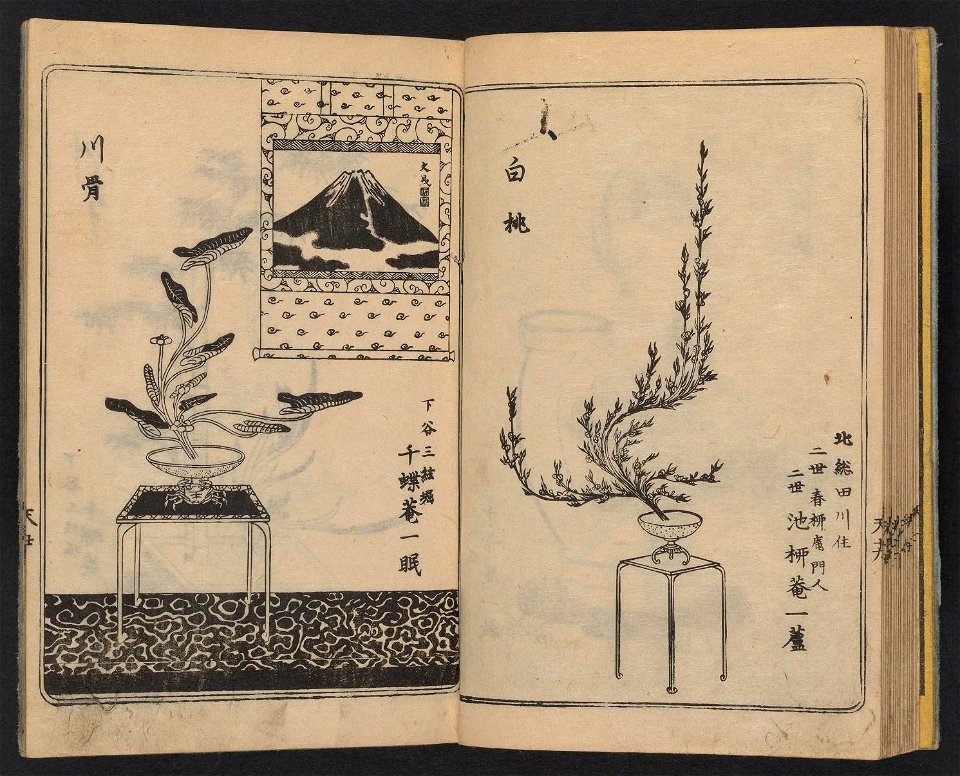 白桃
北総田川住
二世春栁庵門人
二世 池栁菴一蘆
川骨
文晁
下谷三絃堀
千蝶菴一眠